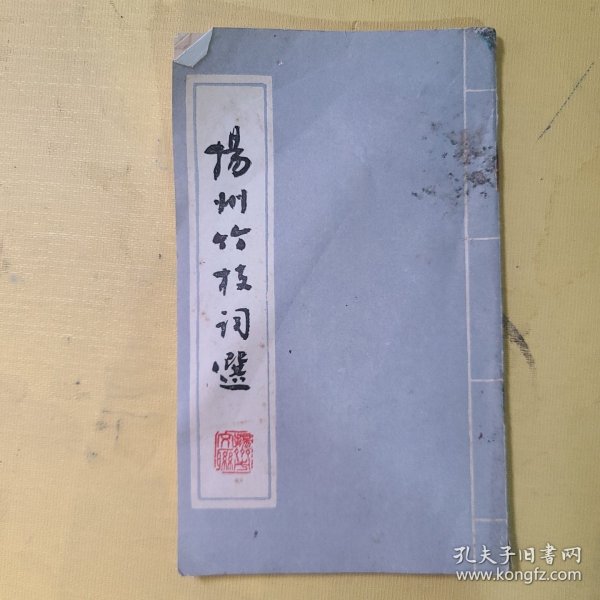 揚州竹枝词選
孔夫子旧書网
www.kongfz.com